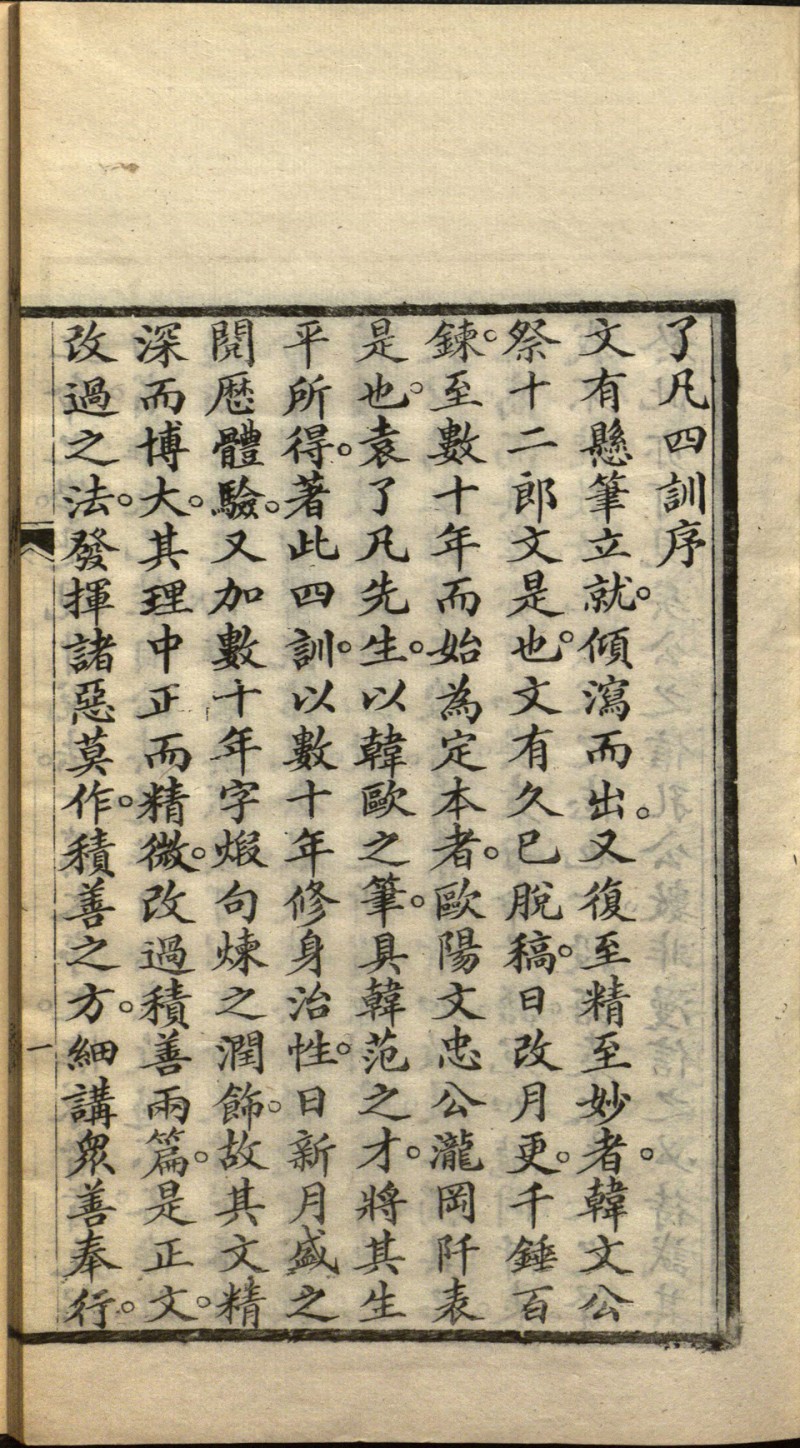 了凡四訓序
文有懸筆立就。傾瀉而出。又復至精至妙者。韓文公
祭十二郎文是也。文有久已脫稿。日改月更。千錘百
鍊。至數十年而始為定本者。歐陽文忠公瀧岡阡表
是也。袁了凡先生。以韓歐之筆。具韓范之才。將其生
平所得。著此四訓。以數十年修身治性。日新月盛之
閱歷體驗。又加數十年字煅句煉之潤飾。故其文精
深而博大。其理中正而精微。改過積善兩篇。是正文。
改過之法。發揮諸惡莫作。積善之方。細講衆善奉行。
一